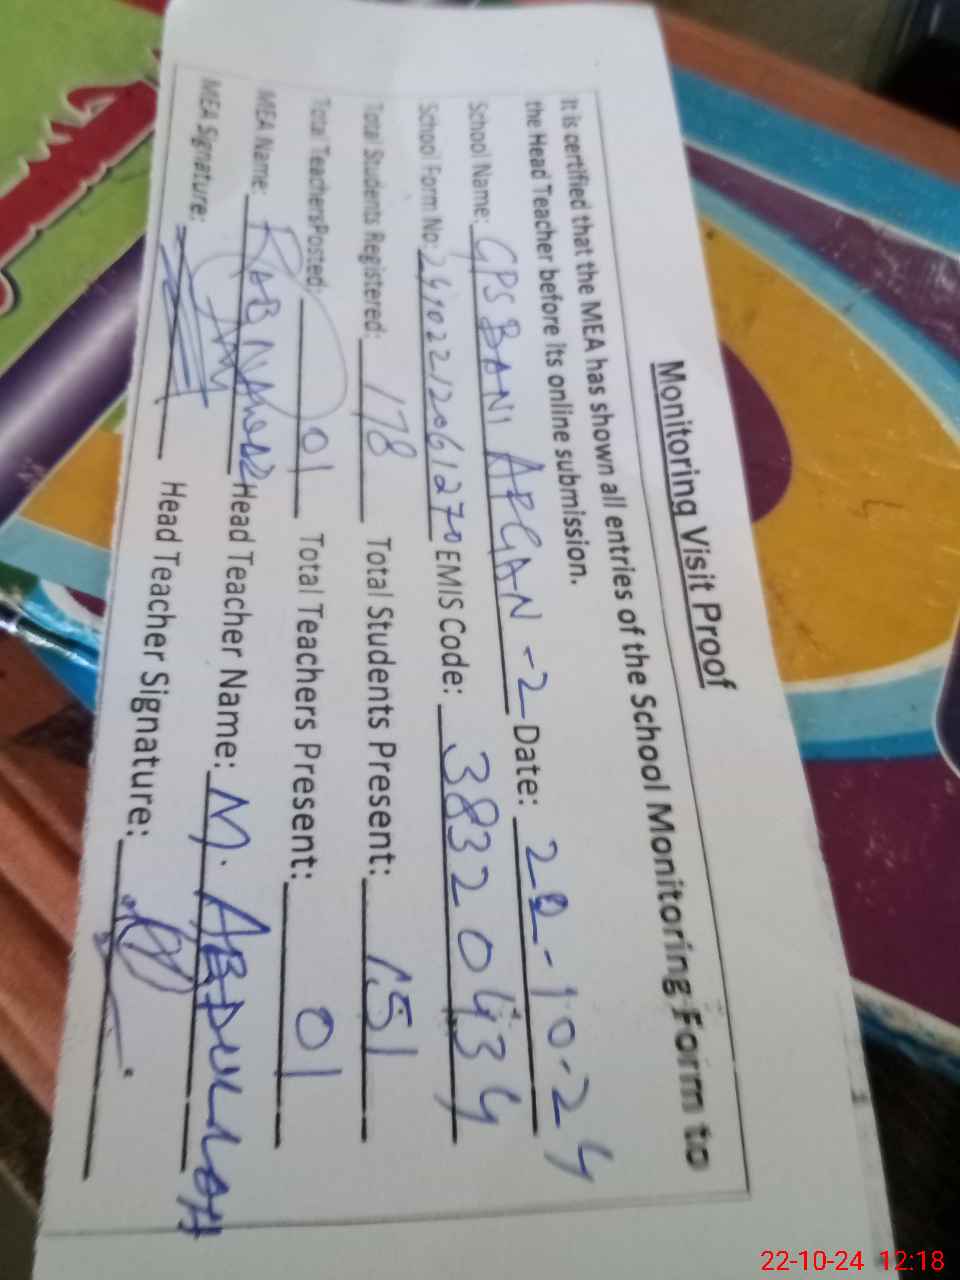 Monitoring Visit Proof
It is certified that the MEA has shown all entries of the School Monitoring Form to
the Head Teacher before its online submission.
School Name: GPS BANI AFGAN -2 Date: 22-10-24
School Form No: EMIS Code: 38320434
Total Students Registered: 178 Total Students Present: 151
Total TeachersPosted: 01 Total Teachers Present: 01
MEA Name: RAB NAWAZ Head Teacher Name: M. ABDULLAH
MEA Signature: Head Teacher Signature:
22-10-24 12:18